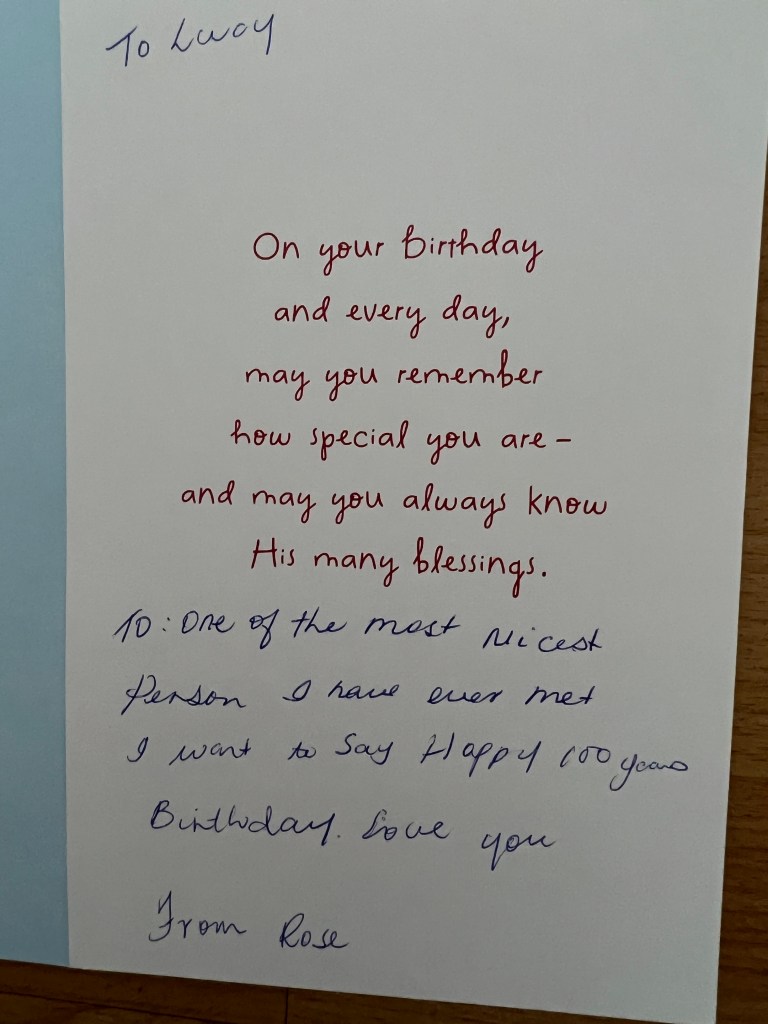 To Lucy
On your birthday
and every day,
may you remember
how special you are –
and may you always know
His many blessings.
TO: One of the most Nicest
Person I have ever met
I want to Say Happy 100 years
Birthday. Love you
From Rose